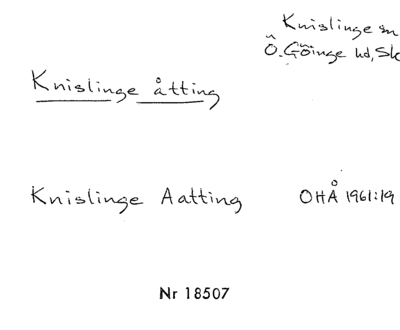 Knislinge sn
Ö. Göinge hd, Sk
Knislinge åtting
Knislinge Aatting
OHÅ 1961:19
Nr 18507